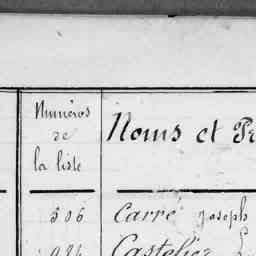 Numéros
de
la liste
Noms et Pr
506 Carré Joseph
Castelier